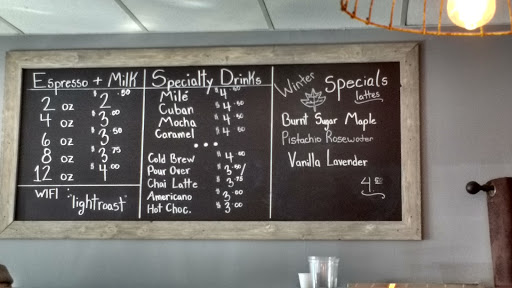 Espresso + Milk
2 oz $2.50
4 oz $3.00
6 oz $3.50
8 oz $3.75
12 oz $4.00
WIFI "lightroast"
Specialty Drinks
Mile $4.
Cuban $4.50
Mocha $4.50
Caramel $4.50
...
Cold Brew $4.00
Pour Over $3.50/
Chai Latte $3.75
Americano $3.00
Hot Choc. $3.00
Winter Specials
lattes
Burnt Sugar Maple
Pistachio Rosewater
Vanilla Lavender
4.50